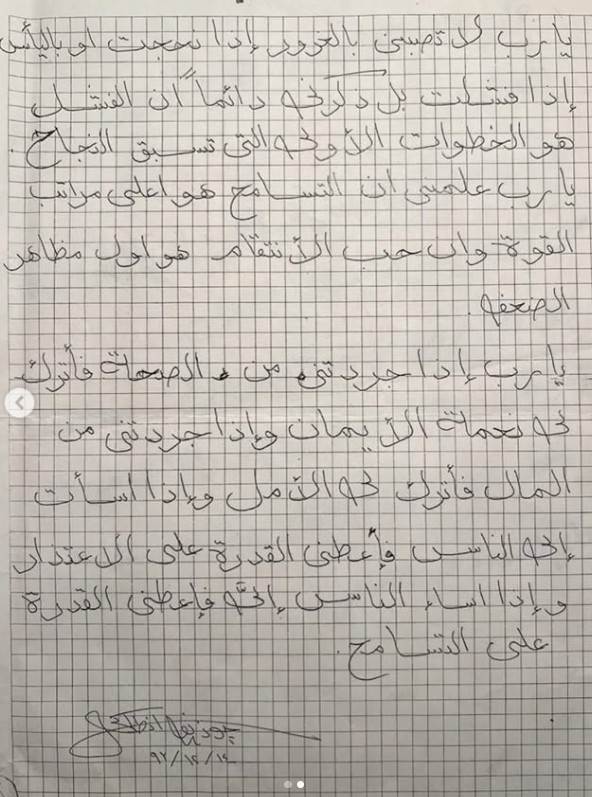 يا رب لا تصبني بالغرور إذا نجحت او باليأس
إذا فشلت بل ذكرني دائماً ان الفشل
هو الخطوات الأولى التي تسبق النجاح.
يا رب علمني ان التسامح هو اعلى مراتب
القوة وان حب الانتقام هو اول مظاهر
الضعف.
يا رب إذا جردتني من الصحة فأترك
لي نعمة الإيمان وإذا جردتني من
المال فأترك لي الأمل وإذا اسأت
إلى الناس فأعطني القدرة على الاعتذار
وإذا اساء الناس إليّ فإعطني القدرة
على التسامح.